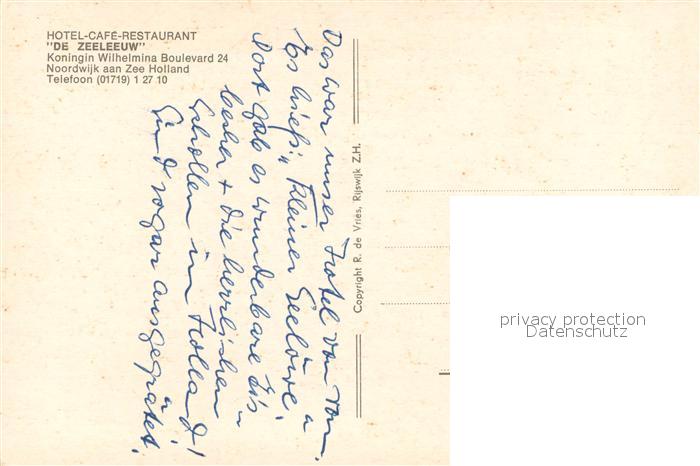 HOTEL-CAFÉ-RESTAURANT
"DE ZEELEEUW"
Koningin Wilhelmina Boulevard 24
Noordwijk aan Zee Holland
Telefoon (01719) 1 27 10
Das war unser Hotel von vorn.
Es hieß: "Kleiner Seelöwe."
Dort gab es wunderbare Eis
becher + die herrlichen
Schollen in Holland!
Sind sogar ausgegrätet.
Copyright R. de Vries, Rijswijk Z.H.
privacy protection
Datenschutz